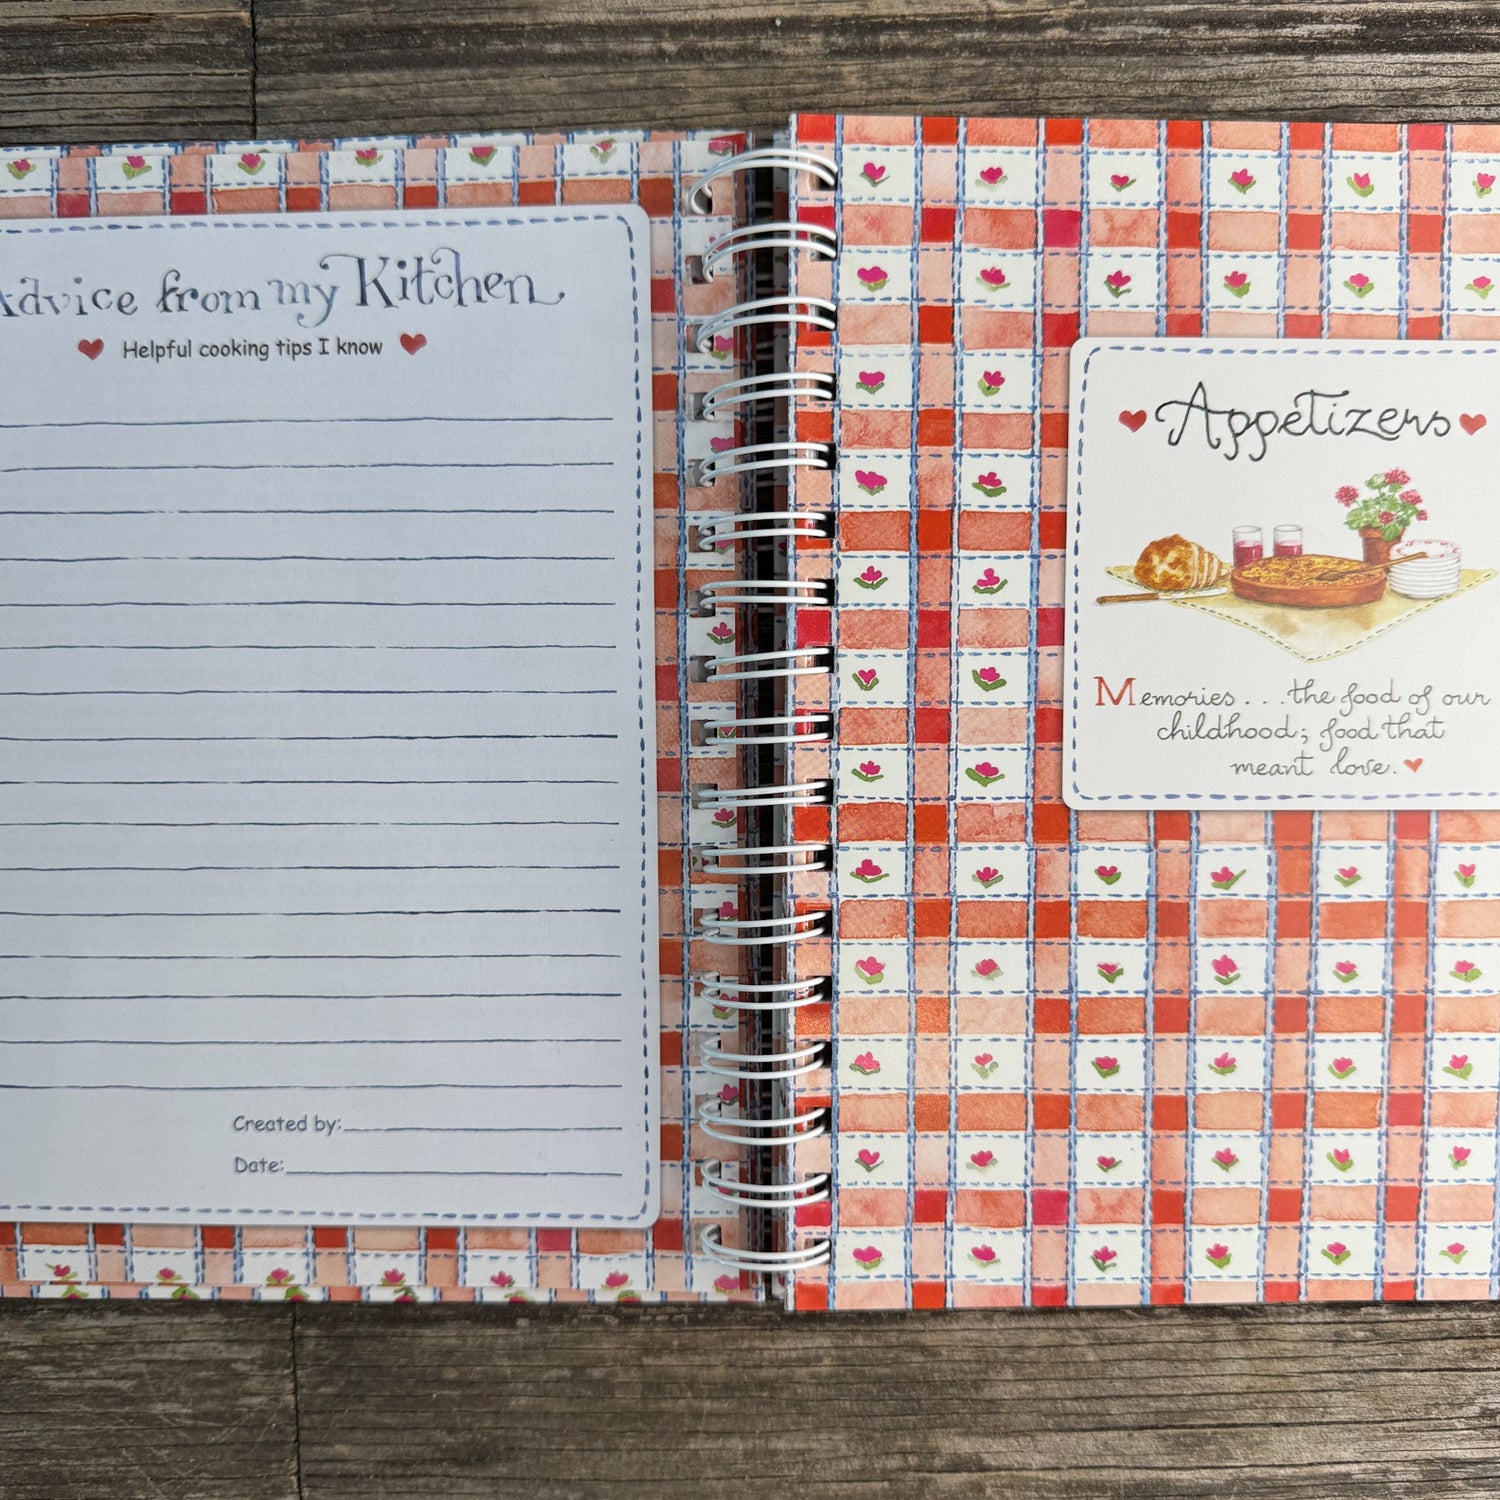 Advice from my Kitchen
Helpful cooking tips I know
Created by:
Date:
Appetizers
Memories . . . the food of our
childhood; food that
meant love.